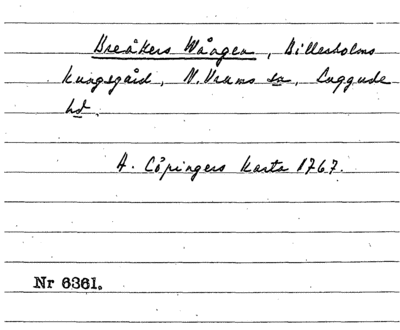 Breåkers Wången, Billesholms
kungsgård, N. Vrams sn, Luggude
hd.
A. Cöpingers karta 1767.
Nr 6361.